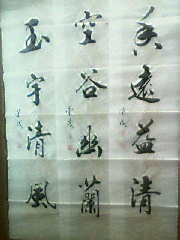 香遠益清
空谷幽蘭
玉宇清風